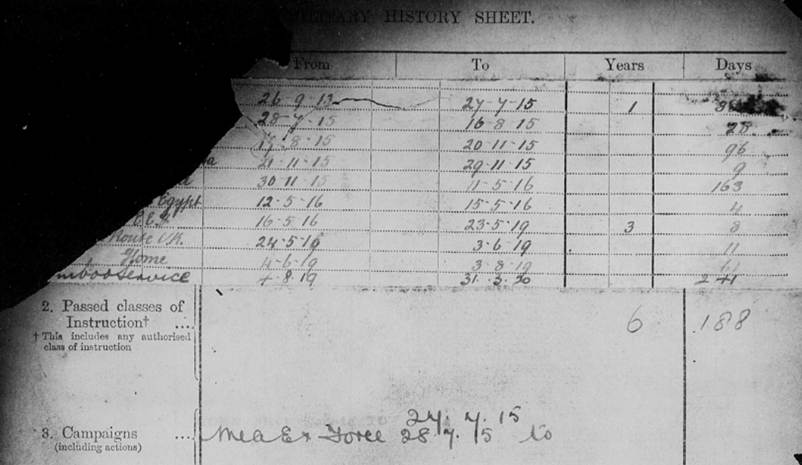 MILITARY HISTORY SHEET.
From To Years Days
26-9-13 27-7-15 1
28-7-15 16-8-15 28
17-8-15 20-11-15 96
21-11-15 29-11-15 9
30-11-15 11-5-16 163
Egypt 12-5-16 15-5-16 4
E.E.F. 16-5-16 23-5-19 3 8
Route U.K. 24-5-19 3-6-19 11
Home 4-6-19 3-8-19
Service 4-8-19 31.3.20 241
2. Passed classes of
Instruction† .... 6 188
† This includes any authorised
class of instruction
27.7.15
3. Campaigns .... Med Ex Force 28.7.15 to
(including actions)